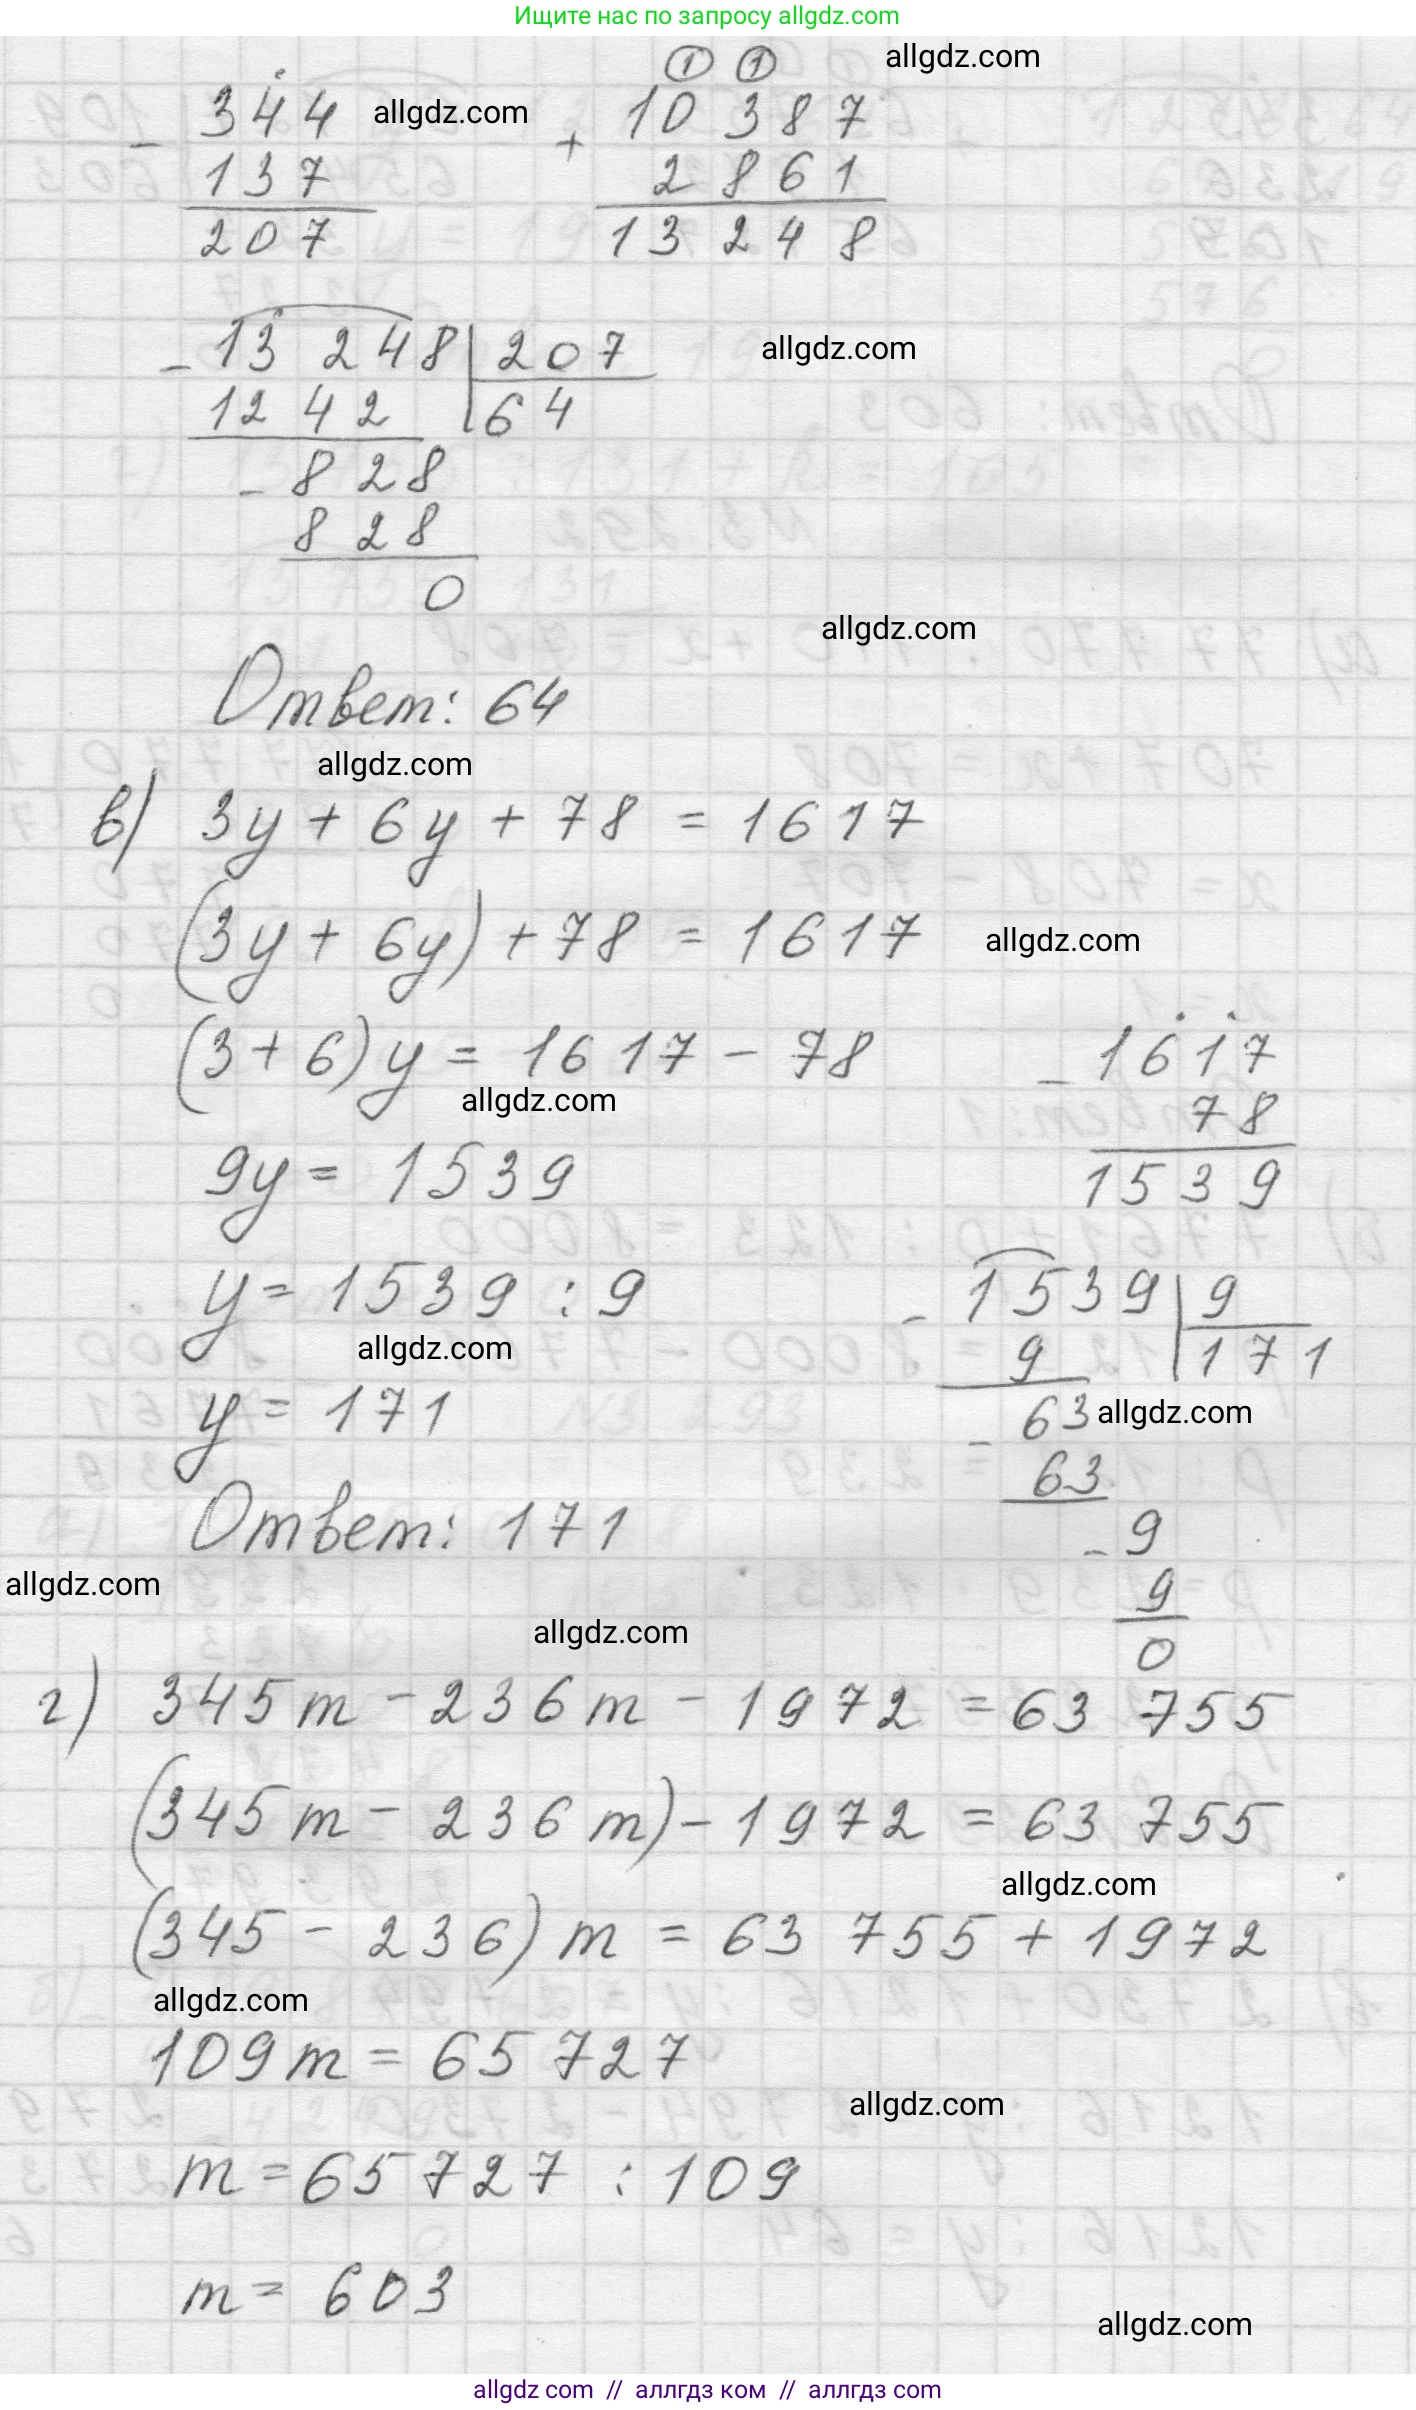 Ищите нас по запросу allgdz.com
allgdz.com
① ①
- 344 allgdz.com + 10 387
137 2 861
207 13 248
- 13 248 | 207 allgdz.com
1242 64
- 828
828
0
allgdz.com
Ответ: 64
allgdz.com
в) 3y + 6y + 78 = 1617
(3y + 6y) + 78 = 1617 allgdz.com
(3 + 6) y = 1617 - 78 - 1617
allgdz.com 78
9y = 1539 1539
y = 1539 : 9 - 1539 | 9
allgdz.com 9 171
y = 171 - 63 allgdz.com
63
Ответ: 171 - 9
allgdz.com 9
allgdz.com 0
г) 345m - 236m - 1972 = 63 755
(345m - 236m) - 1972 = 63 755
allgdz.com
(345 - 236) m = 63 755 + 1972
allgdz.com
109m = 65 727
allgdz.com
m = 65 727 : 109
m = 603
allgdz.com
allgdz com // аллгдз ком // аллгдз com